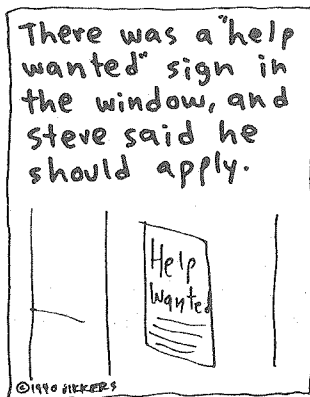 There was a "help
wanted" sign in
the window, and
steve said he
should apply.
Help
Wanted
©1990 JIKKERS